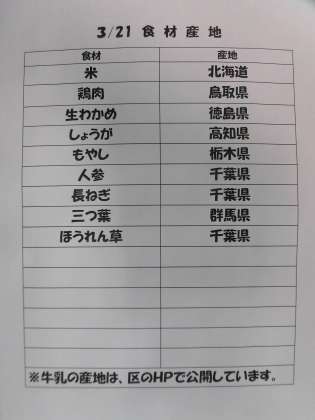 3/21 食材産地
食材 産地
米 北海道
鶏肉 鳥取県
生わかめ 徳島県
しょうが 高知県
もやし 栃木県
人参 千葉県
長ねぎ 千葉県
三つ葉 群馬県
ほうれん草 千葉県
※牛乳の産地は、区のHPで公開しています。